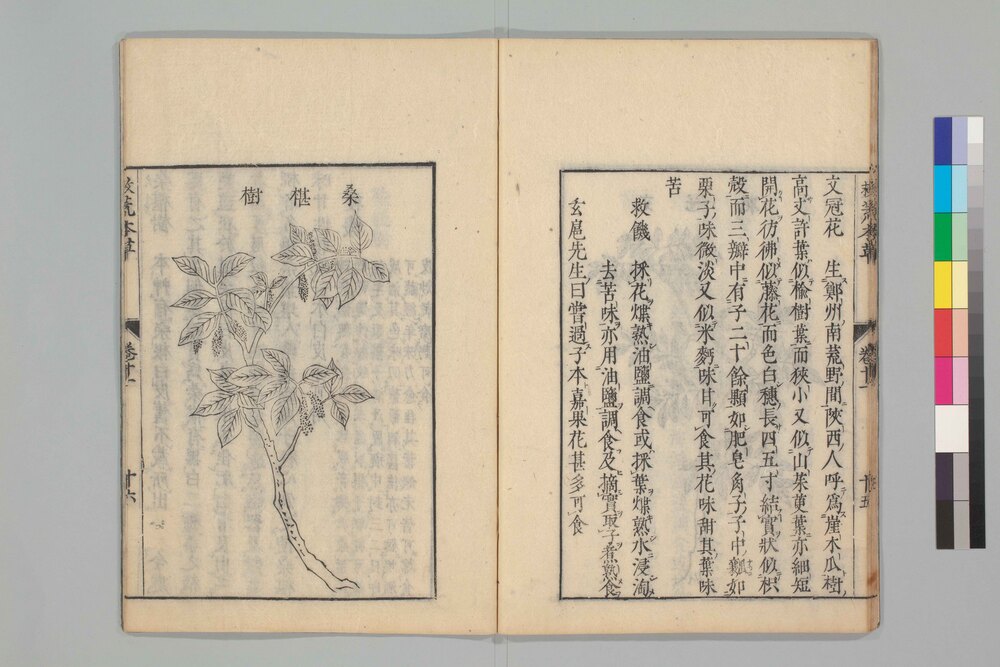 文冠花　生鄭州南荒野間陝西人呼爲崖木瓜樹
高丈許葉似榆樹葉而狹小又似山茱萸葉亦細短
開花彷彿似藤花而色白穗長四五寸結實狀似枳
殼而三瓣中有子二十餘顆如肥皂角子子中瓤如
栗子味微淡又似米麪味甘可食其花味甜其葉味
苦
救饑　採花煠熟油鹽調食或採葉煠熟水浸淘
去苦味亦用油鹽調食及摘實取子煮熟食
玄扈先生曰嘗過子本嘉果花甚多可食
救荒本草
卷廿一
十六
桑椹樹